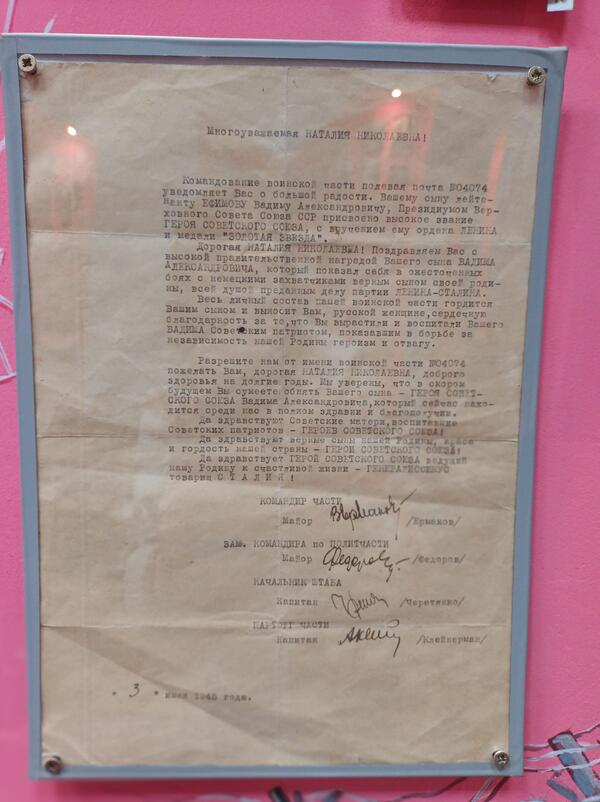 Многоуважаемая НАТАЛИЯ НИКОЛАЕВНА!
Командование воинской части полевая почта №04074
уведомляет Вас о большой радости. Вашему сыну лейте-
нанту ЕФИМОВУ Вадиму Александровичу, Президиумом Вер-
ховного Совета Союза ССР присвоено высокое звание
ГЕРОЯ СОВЕТСКОГО СОЮЗА, с вручением ему ордена ЛЕНИНА
и медали "ЗОЛОТАЯ ЗВЕЗДА".
Дорогая НАТАЛИЯ НИКОЛАЕВНА! Поздравляем Вас с
высокой правительственной наградой Вашего сына ВАДИМА
АЛЕКСАНДРОВИЧА, который показал себя в ожесточенных
боях с немецкими захватчиками верным сыном своей роди-
ны, всей душой преданным делу партии ЛЕНИНА-СТАЛИНА.
Весь личный состав нашей воинской части гордится
Вашим сыном и выносит Вам, русской женщине, сердечную
благодарность за то, что Вы вырастили и воспитали Вашего
ВАДИМА Советским патриотом, показавшим в борьбе за
независимость нашей Родины героизм и отвагу.
Разрешите нам от имени воинской части №04074
пожелать Вам, дорогая НАТАЛИЯ НИКОЛАЕВНА, доброго
здоровья на долгие годы. Мы уверены, что в скором
будущем Вы сумеете обнять Вашего сына - ГЕРОЯ СОВЕТ-
СКОГО СОЮЗА Вадима Александровича, который сейчас нахо-
дится среди нас в полном здравии и благополучии.
Да здравствуют Советские матери, воспитавшие
Советских патриотов - ГЕРОЕВ СОВЕТСКОГО СОЮЗА!
Да здравствуют верные сыны нашей Родины, краса
и гордость нашей страны - ГЕРОИ СОВЕТСКОГО СОЮЗА!
Да здравствует ГЕРОЙ СОВЕТСКОГО СОЮЗА ведущий
нашу Родину к счастливой жизни - ГЕНЕРАЛИССИМУС
товарищ СТАЛИН!
КОМАНДИР ЧАСТИ
Майор /Ермаков/
ЗАМ. КОМАНДИРА по ПОЛИТЧАСТИ
Майор /Федоров/
НАЧАЛЬНИК ШТАБА
Капитан /Черетянко/
ПАРТОРГ ЧАСТИ
Капитан /Клейнерман/
" 3 " 1945 года.